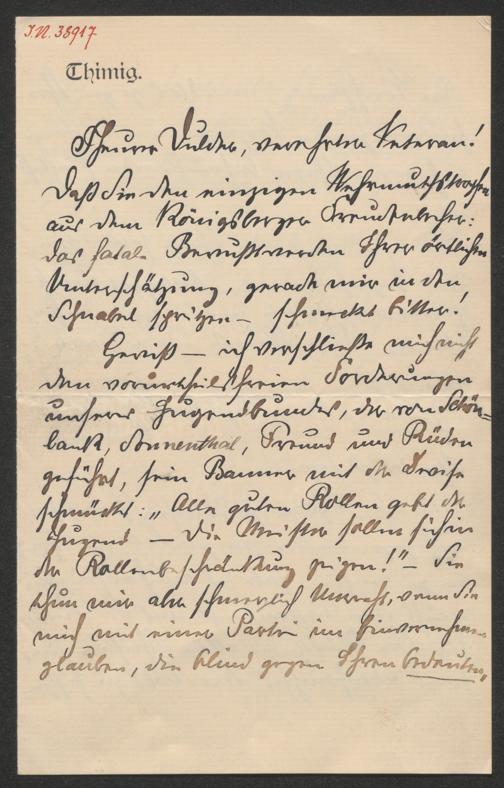 J.N. 38917
Thimig.
Theurer Dulder, verehrter Veteran!
Daß Sie den einzigen Wehrmuthstropfen
aus dem Königsberger Freudenbecher:
das fatale Bewußtwerden Ihrer örtlichen
Unterschätzung, gerade mir in den
Schnabel spritzen – schmeckt bitter!
Gewiß – ich verschließe mich nicht
den vorurtheilsfreien Forderungen
unseres Jugendbundes, der von Schön=
bank, Sonnenthal, Freund und Rüden
geführt, sein Banner mit der Devise
schmückt: „Alle guten Rollen gebt der
Jugend – Die Meister sollen sich in
der Rollenbeschränkung zeigen!" – Sie
thun mir aber schmerzlich Unrecht, wenn Sie
mich mit einer Partei im Einvernehmen
glauben, die blind gegen Ihren bedeuten„